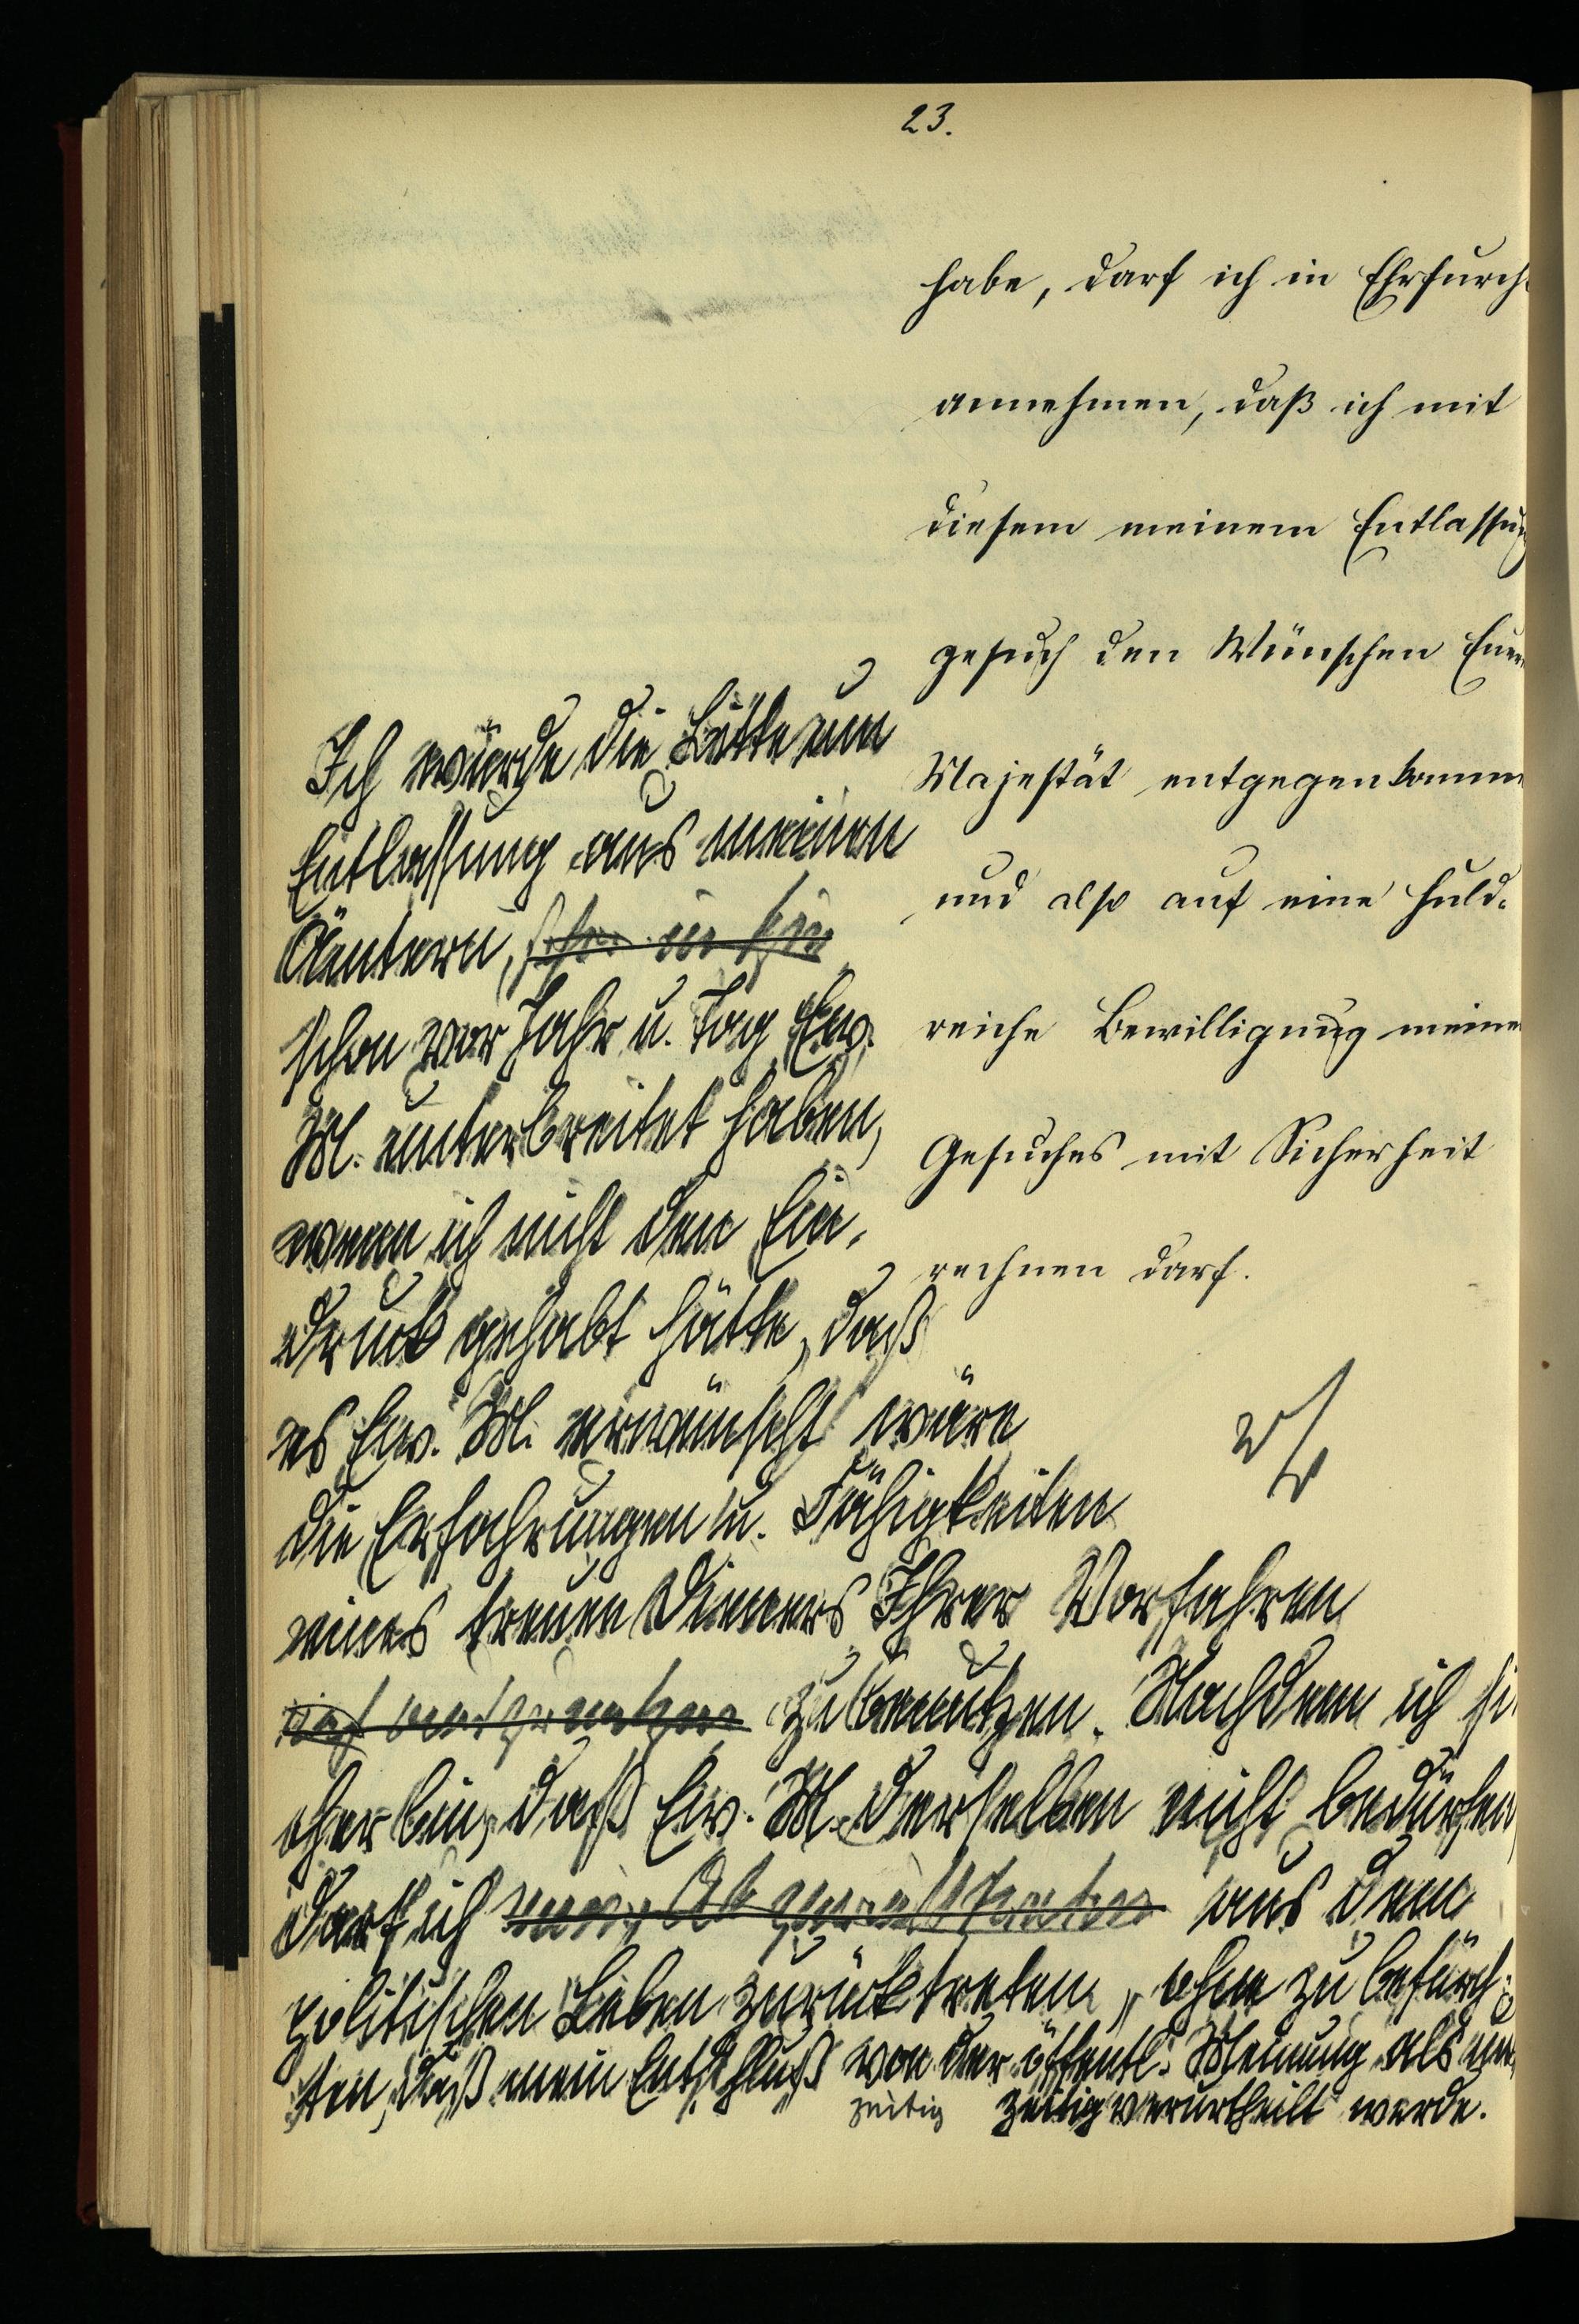 23.
habe, darf ich in Ehrfurch
annehmen, daß ich mit
diesem meinem Entlassung
gesuch den Wünschen Eurer
Majestät entgegenkomme
und also auf eine huld-
reiche Bewilligung meines
Gesuches mit Sicherheit
rechnen darf.
Ich würde die Bitte um
Entlassung aus meinen
Ämtern,
schon vor Jahr u. Tag Ew.
M. unterbreitet haben,
wenn ich nicht den Ein-
druck gehabt hätte, daß
es Ew. M. erwünscht wäre
die Erfahrungen u. Fähigkeiten
eines treuen Dieners Ihrer Vorfahren
zu benutzen. Nachdem ich si
cher bin, daß Ew. M. derselben nicht bedürfen
darf ich aus dem
politischen Leben zurücktreten, ohne zu befürch-
ten, daß mein Entschluß von der öffentl. Meinung als un
zeitig zeitig verurtheilt werde.